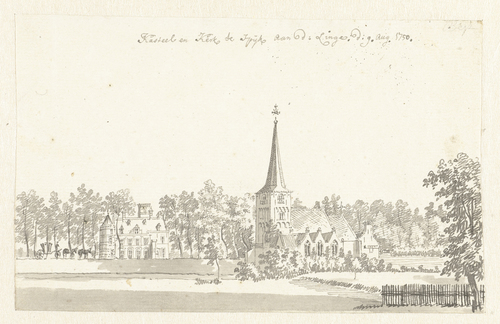 Kasteel en Kerk de Spijk aan de Linge. d. 9. Aug. 1750.